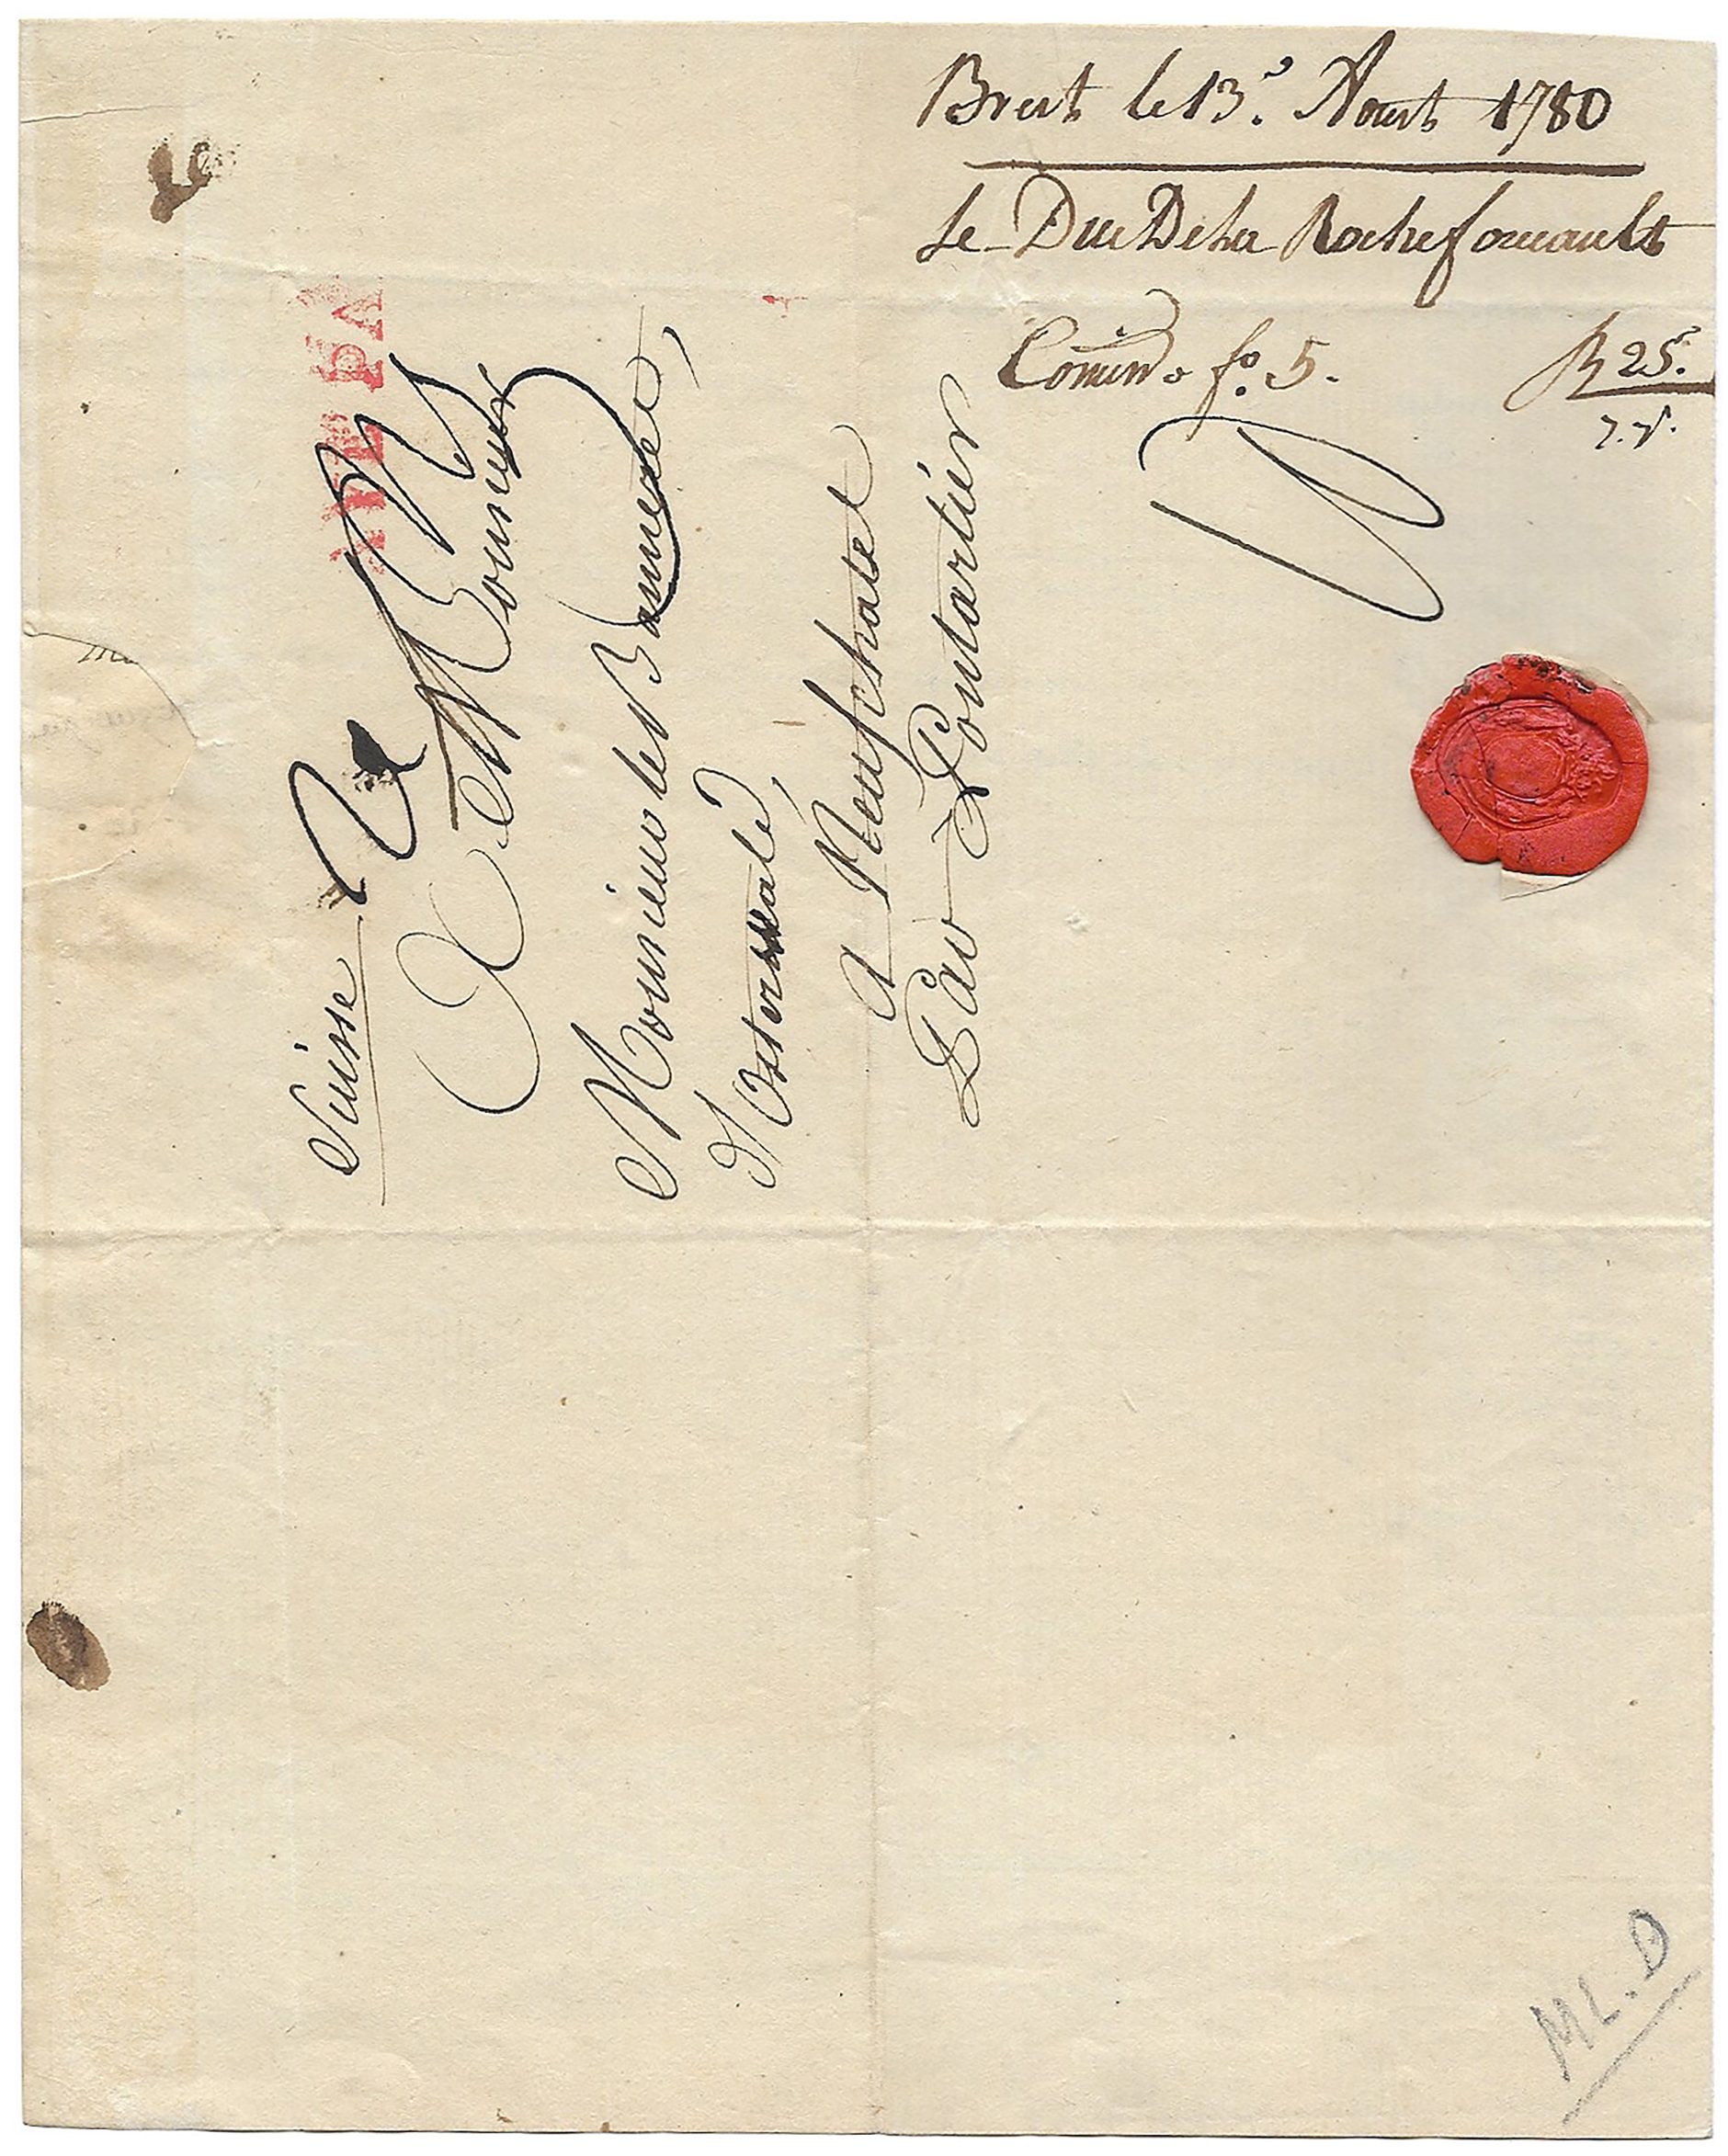 Brest le 13.e Aoust 1780
Le Duc De la Rochefoucault
Comm.o f.o 5.
R 25.
Suisse
A Monsieur
Monsieur le Banneret
d'Osterwald,
a Neufchatel
Par Pontarlier
ML.D